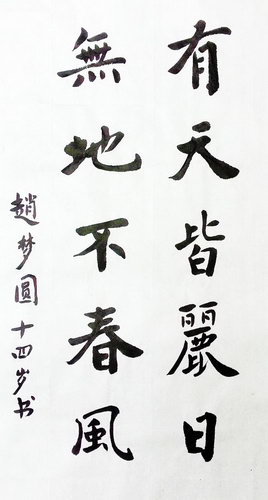 有天皆麗日
無地不春風
趙梦圆十四岁书